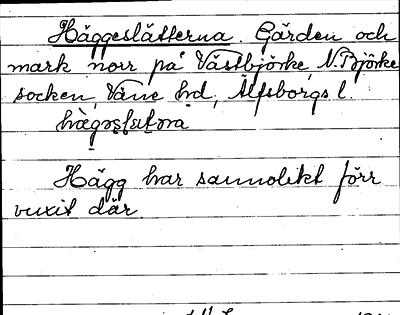 Häggeslätterna. Gärden och
mark norr på Västbjörke, N. Björke
socken, Väne hd, Älfsborgs l.
Hägg har sannolikt förr
vuxit där.